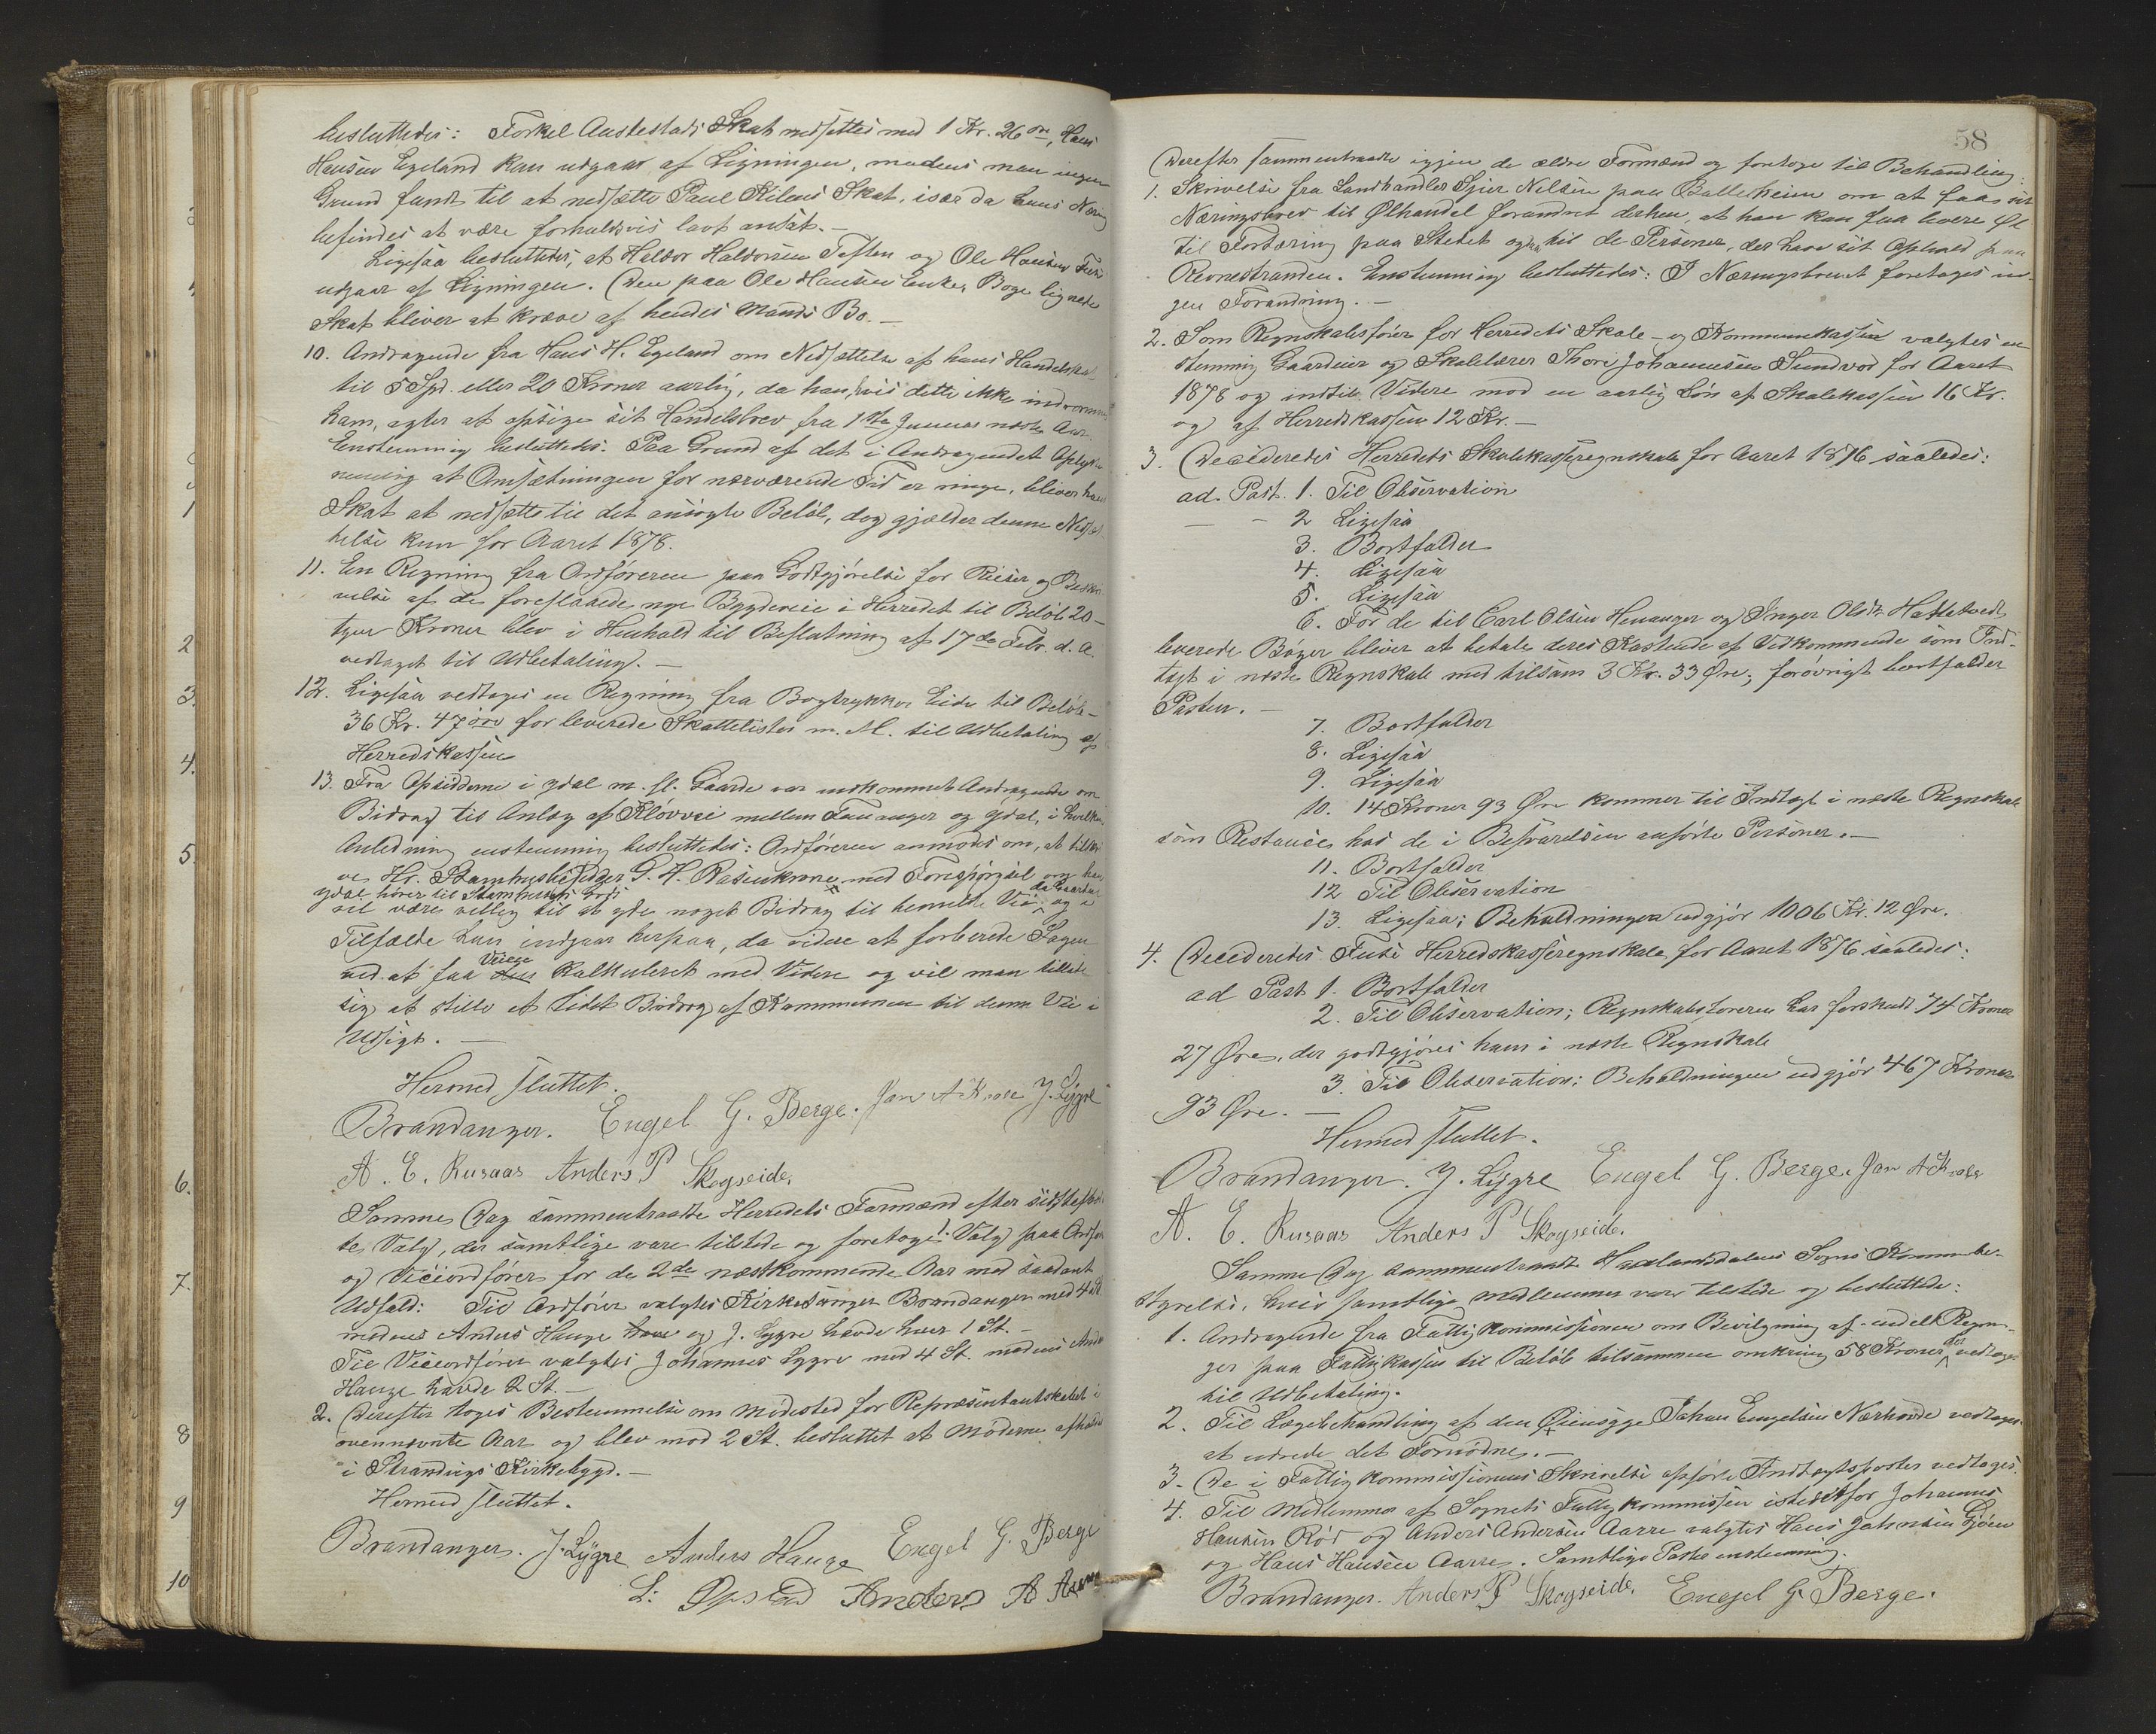 besluttedes: Torkel Austestads Skat nedsættes med 1 Kr. 26 øre, Hans
Hansen Egeland kan udgaar af Ligningen, medens man ingen
Grund fandt til at nedsætte Paul Kilens Skat, især da hans Næring
befindes at være forholdsvis lavt ansat.—
Ligesaa besluttedes, at Haldor Haldorsen Teften og Ole Hansen Fuse
udgaar af Ligningen. Den paa Ole Hansens Enke, Boge lignede
Skat bliver at kræve af hendes Mands Bo.—
10. Andragende fra Hans H. Egeland om Nedsættelse af hans Handelsskat
til 5 Spd. eller 20 Kroner aarlig, da han, hvis dette ikke indrømmes
ham, agter at opsige sit Handelsbrev fra 1ste Januar næste Aar.
Enstemmig besluttedes: Paa Grund af det i Andragendet Oplyste
nemlig at Omsætningen for nærværende Tid er ringe, bliver hans
Skat at nedsætte til det ansøgte Beløb, dog gjælder denne Nedsæt-
telse kun for Aaret 1878.
11. En Regning fra Ordføreren paa Godtgjørelse for Reiser og Beskri-
velse af de foreslaaede nye Bygdeveie i Herredet til Beløb 20 -
tyve Kroner blev i Henhold til Beslutning af 17de Febr. d. A.
vedtaget til Udbetaling.—
12. Ligesaa vedtages en Regning fra Bogtrykker Eide til Beløb —
36 Kr. 47 øre for leverede Skattelister m. M. til Udbetaling af
Herredskassen
13. Fra Opsidderne i Ydal m. fl. Gaarde var indkommet Andragende om
Bidrag til Anlæg af Kløvvei mellem Fuanger og Ydal, i hvilken
Anledning enstemmig besluttedes: Ordføreren anmodes om, at tilskri-
ve Hr. Stamhusbesidder G. H. Rosenkrone med Forespørgsel om han
Ydal hører til Stamhusets Gods
vil være villig til at yde noget Bidrag til bemeldte Vei, og i
Tilfælde han indgaar herpaa, da videre at forberede Sagen
ved at faa Veien kalkuleret med Videre og vil man tillade
sig at stille et lidet Bidrag af Kommunen til denne Vei i
Udsigt.—
Hermed sluttet.
Brandanger. Engel G. Berge. J. Lygre
A. E. Rusaas Anders P Skogseide,
Samme Dag sammentraadte Herredets Formænd efter sidst afhold-
te Valg, der samtlige vare tilstede og foretoge 1. Valg paa Ordfører
og Viceordfører for de 2de næstkommende Aar med saadant
Udfald: Til Ordfører valgtes Kirkesanger Brandanger med 4 St.
medens Anders Hauge og J. Lygre havde hver 1 St.—
Til Viceordfører valgtes Johannes Lygre med 4 St. medens Anders
Hauge havde 2 St.—
2. Derefter toges Bestemmelse om Mødested for Repræsentantskabet i
ovennævnte Aar og blev mod 2 St. besluttet at Møderne afholdes
i Strandvigs Kirkebygd.—
Hermed sluttet.
Brandanger. J. Lygre Anders Hauge Engel G. Berge
L. Opstad Anders A
58
Derefter sammentraadte igjen de ældre Formænd og foretoge til Behandling:
1. Skrivelse fra Landhandler Sjur Nilsen paa Balleheim om at faa sit
Næringsbrev til Ølhandel forandret derhen, at han kan faa levere Øl
til Fortæring paa Stedet og til de Personer, der have sit Ophold paa
Revnestranden. Enstemmig besluttedes: I Næringsbrevet foretages in-
gen Forandring.—
2. Som Regnskabsfører for Herredets Skole- og Kommunekasser valgtes en-
stemmig Gaardeier og Skolelærer Thore Johannesen Sundvor for Aaret
1878 og indtil Videre mod en aarlig Løn af Skolekassen 16 Kr.
og af Herredskassen 12 Kr.—
3. Decideredes Herredets Skolekasseregnskab for Aaret 1876 saaledes:
ad. Post. 1. Til Observation
— - 2 Ligesaa
3. Bortfalder
4. Ligesaa
5. Ligesaa
6. For de til Carl Olsen Henanger og Inger Olsdr Hatletvedt
leverede Bøger bliver at betale deres Kostende af Vedkommende som Ind-
tægt i næste Regnskab med tilsam 3 Kr. 33 Øre; forøvrigt bortfalder
Posten.—
7. Bortfalder
8. Ligesaa
9. Ligesaa
10. 14 Kroner 93 Øre kommer til Indtægt i næste Regnskab
som Restance hos de i Besvarelsen anførte Personer.—
11. Bortfalder
12 Til Observation
13. Ligesaa; Beholdningen udgjør 1006 Kr. 12 Øre.
4. Decideredes Fuse Herredskasseregnskab for Aaret 1876 saaledes:
ad Post 1. Bortfalder
2. Til Observation; Regnskabsføreren har forskudt 74 Kroner
27 Øre, der godtgjøres ham i næste Regnskab
3. Til Observation; Beholdningen udgjør 467 Kroner
93 Øre.—
Hermed sluttet.
Brandanger. J. Lygre Engel G. Berge.
A. E. Rusaas Anders P Skogseide.
Samme Dag sammentraadte Haalandsdalens Sogns Kommunebe-
styrelse, hvis samtlige Medlemmer vare tilstede og besluttede:
1. Andragende fra Fattigkommissionen om Bevilgning af endel Regnin-
ger paa Fattigkassen til Beløb tilsammen omkring 58 Kroner, der vedtoges
til Udbetaling.
2. Til Lægebehandling af den Øiensyge Johan Engelsen Nærhovde vedtoges
at udrede det Fornødne.—
3. De i Fattigkommissionens Skrivelse opførte Indtægtsposter vedtoges.
4. Til Medlemmer af Sognets Fattigkommission istedetfor Johannes
Hansen Rød og Anders Andersen Aarre valgtes Hans Johnsen Gjøen
og Hans Hansen Aarre. Samtlige Poster enstemmig.
Brandanger. Anders P Skogseide, Engel G. Berge.
2
3.
4.
5.
6.
7.
8
9
10